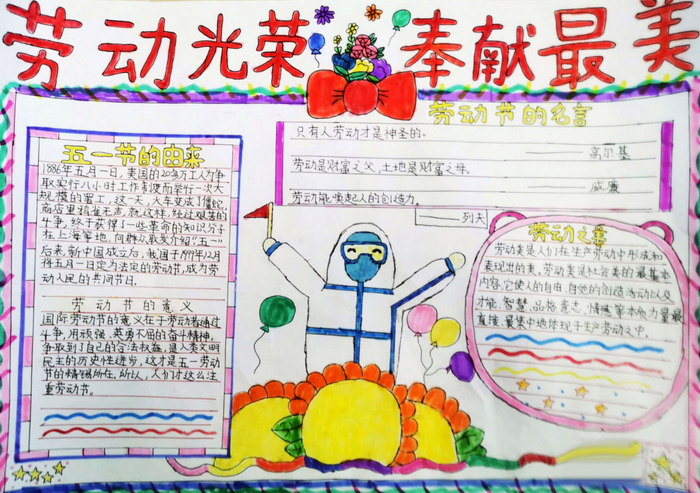 劳动光荣 奉献最美
劳动节的名言
只有人劳动才是神圣的。
高尔基
劳动是财富之父,土地是财富之母。
威廉
劳动能唤起人的创造力。
列夫
五一节的由来
1886年五月一日,美国的20多万工人为争
取实行八小时工作制度而举行一次大
规模的罢工,这一天,火车变成了僵蛇
商店里鸦雀无声,就这样,经过艰苦的
斗争,终于获得了一些革命的知识分子
在上海等地,向群众散发介绍“五一”
后来,新中国成立后,我国于1949年12月
将五月一日定为法定的劳动节,成为劳
动人民的共同节日.
劳动节的意义
国际劳动节的意义在于劳动者通过
斗争,用顽强、英勇不屈的奋斗精神,
争取到了自己的合法权益,是人类文明
民主的历史性进步,这才是五一劳动
节的精髓所在,所以,人们才这么注
重劳动节。
劳动之美
劳动美是人们在生产劳动中形成和
表现出的美,劳动美是社会美的最基本
内容,它使人的自由、自觉的创造活动以及
才能、智慧、品格意志,情感等本质力量最
直接、最集中地体现于生产劳动之中.